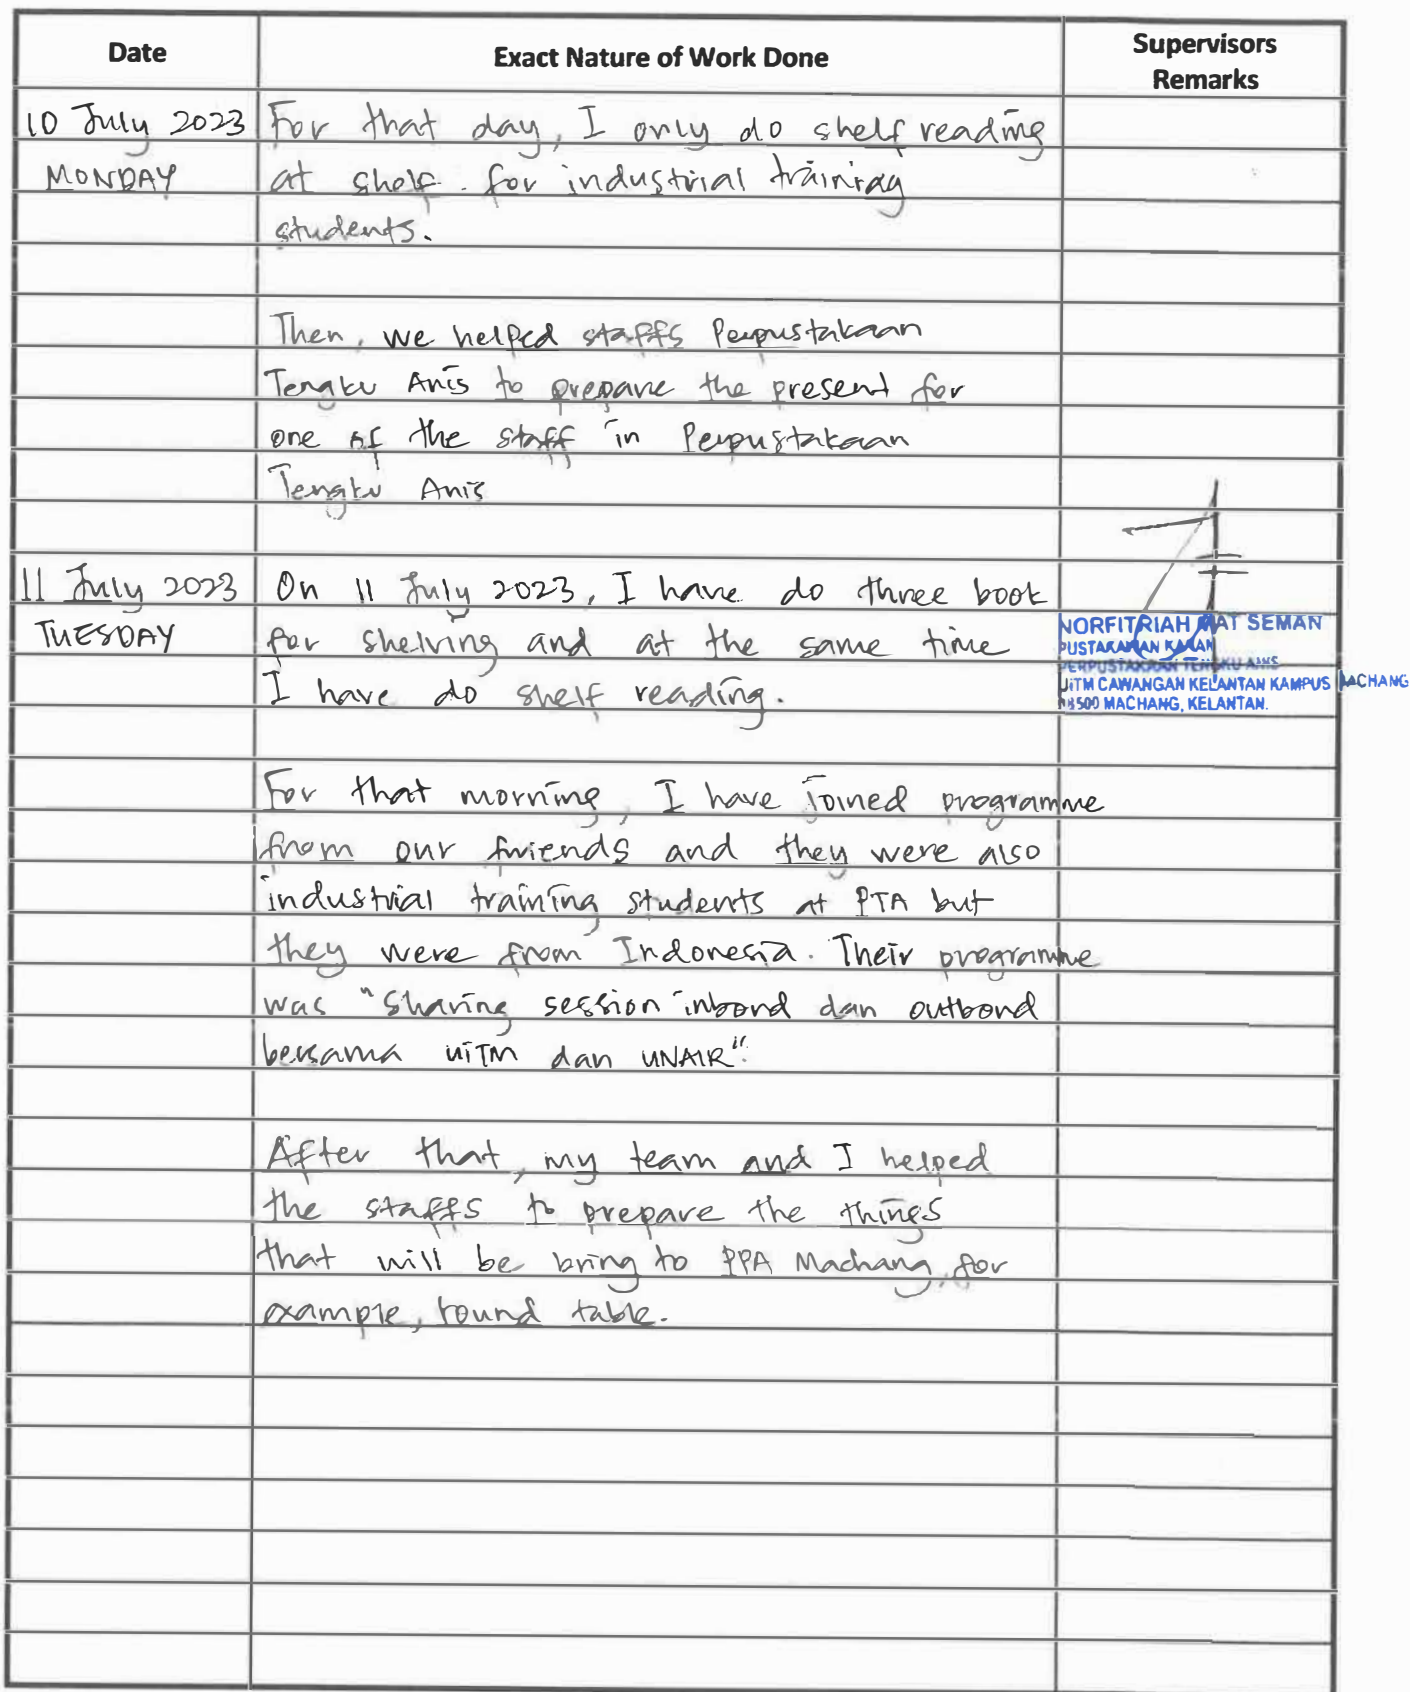 Date
Exact Nature of Work Done
Supervisors
Remarks
10 July 2023
MONDAY
For that day, I only do shelf reading
at shelf for industrial training
students.
Then, we helped staffs Perpustakaan
Tengku Anis to prepare the present for
one of the staff in Perpustakaan
Tengku Anis
11 July 2023
TUESDAY
On 11 July 2023, I have do three book
for shelving and at the same time
I have do shelf reading.
For that morning, I have joined programme
from our friends and they were also
industrial training students at PTA but
they were from Indonesia. Their programme
was "Sharing session inbond dan outbond
bersama UiTM dan UNAIR".
After that, my team and I helped
the staffs to prepare the things
that will be bring to PPA Machang, for
example, round table.
NORFITRIAH MAT SEMAN
PUSTAKAWAN KANAN
PERPUSTAKAAN TENGKU ANIS
UiTM CAWANGAN KELANTAN KAMPUS MACHANG
18500 MACHANG, KELANTAN.